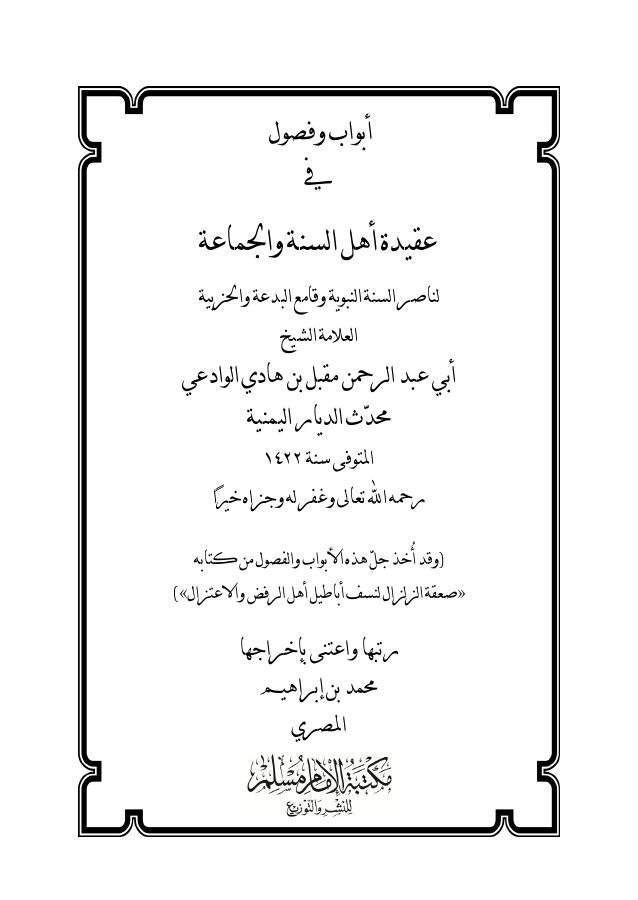 أبواب وفصول
في
عقيدة أهل السنة والجماعة
لناصر السنة النبوية وقامع البدعة والحزبية
العلامة الشيخ
أبي عبد الرحمن مقبل بن هادي الوادعي
محدّث الديار اليمنية
المتوفى سنة ١٤٢٢
رحمه الله تعالى وغفر له وجزاه خيرًا
(وقد أُخذ جلّ هذه الأبواب والفصول من كتابه
«صعقة الزلزال لنسف أباطيل أهل الرفض والاعتزال»)
رتبها واعتنى بإخراجها
محمد بن إبراهيم
المصري
مَكْتَبَةُ الإِمَامِ مُسْلِم
لِلنَّشْرِ وَالتَّوْزِيعِ